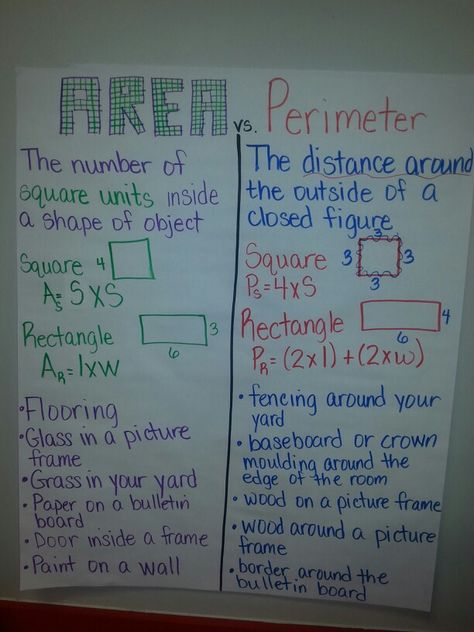 AREA vs. Perimeter
The number of
square units inside
a shape of object
Square 4
As = S x S
Rectangle 3
6
AR = l x w
• Flooring
• Glass in a picture
frame
• Grass in your yard
• Paper on a bulletin
board
• Door inside a frame
• Paint on a wall
The distance around
the outside of a
closed figure
3
Square 3 3
3
Ps = 4 x S
Rectangle 4
6
PR = (2 x l) + (2 x w)
• fencing around your
yard
• baseboard or crown
moulding around the
edge of the room
• wood on a picture frame
• wood around a picture
frame
• border around the
bulletin board